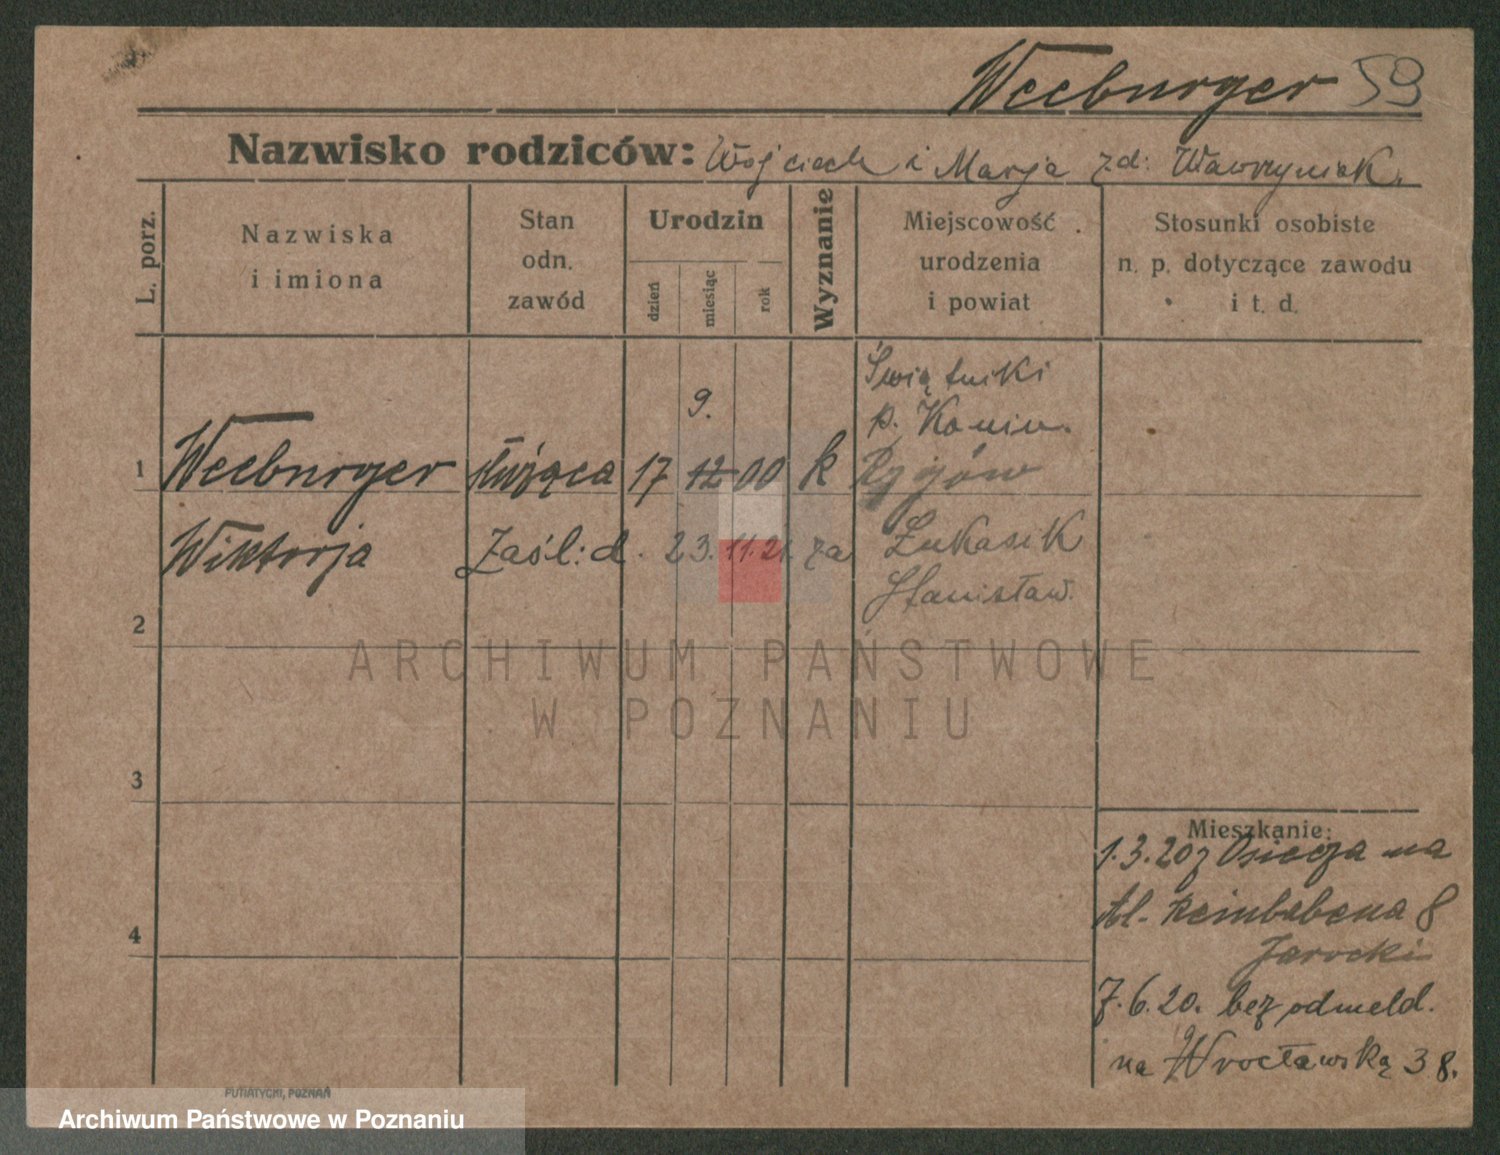 Weeburger 59
Nazwisko rodziców: Wojciech i Marja zd: Wawrzyniak.
L. porz.
Nazwiska
i imiona
Stan
odn.
zawód
Urodzin
dzień
miesiąc
rok
Wyznanie
Miejscowość
urodzenia
i powiat
Stosunki osobiste
n. p. dotyczące zawodu
i t. d.
Świątniki
9.
p. Konin.
1 Weeburger służąca 17 12 00 k
Wiktorja Zaśl: d. 23. 11. 21. za Łukasik
Stanisław.
2
ARCHIWUM PAŃSTWOWE
W POZNANIU
3
Mieszkanie:
1.3.20 z Osiecza na
8
4
Jarocki
7.6.20. bez odmeld.
na Wrocławską 38.
PUTIATYCKI, POZNAŃ
Archiwum Państwowe w Poznaniu